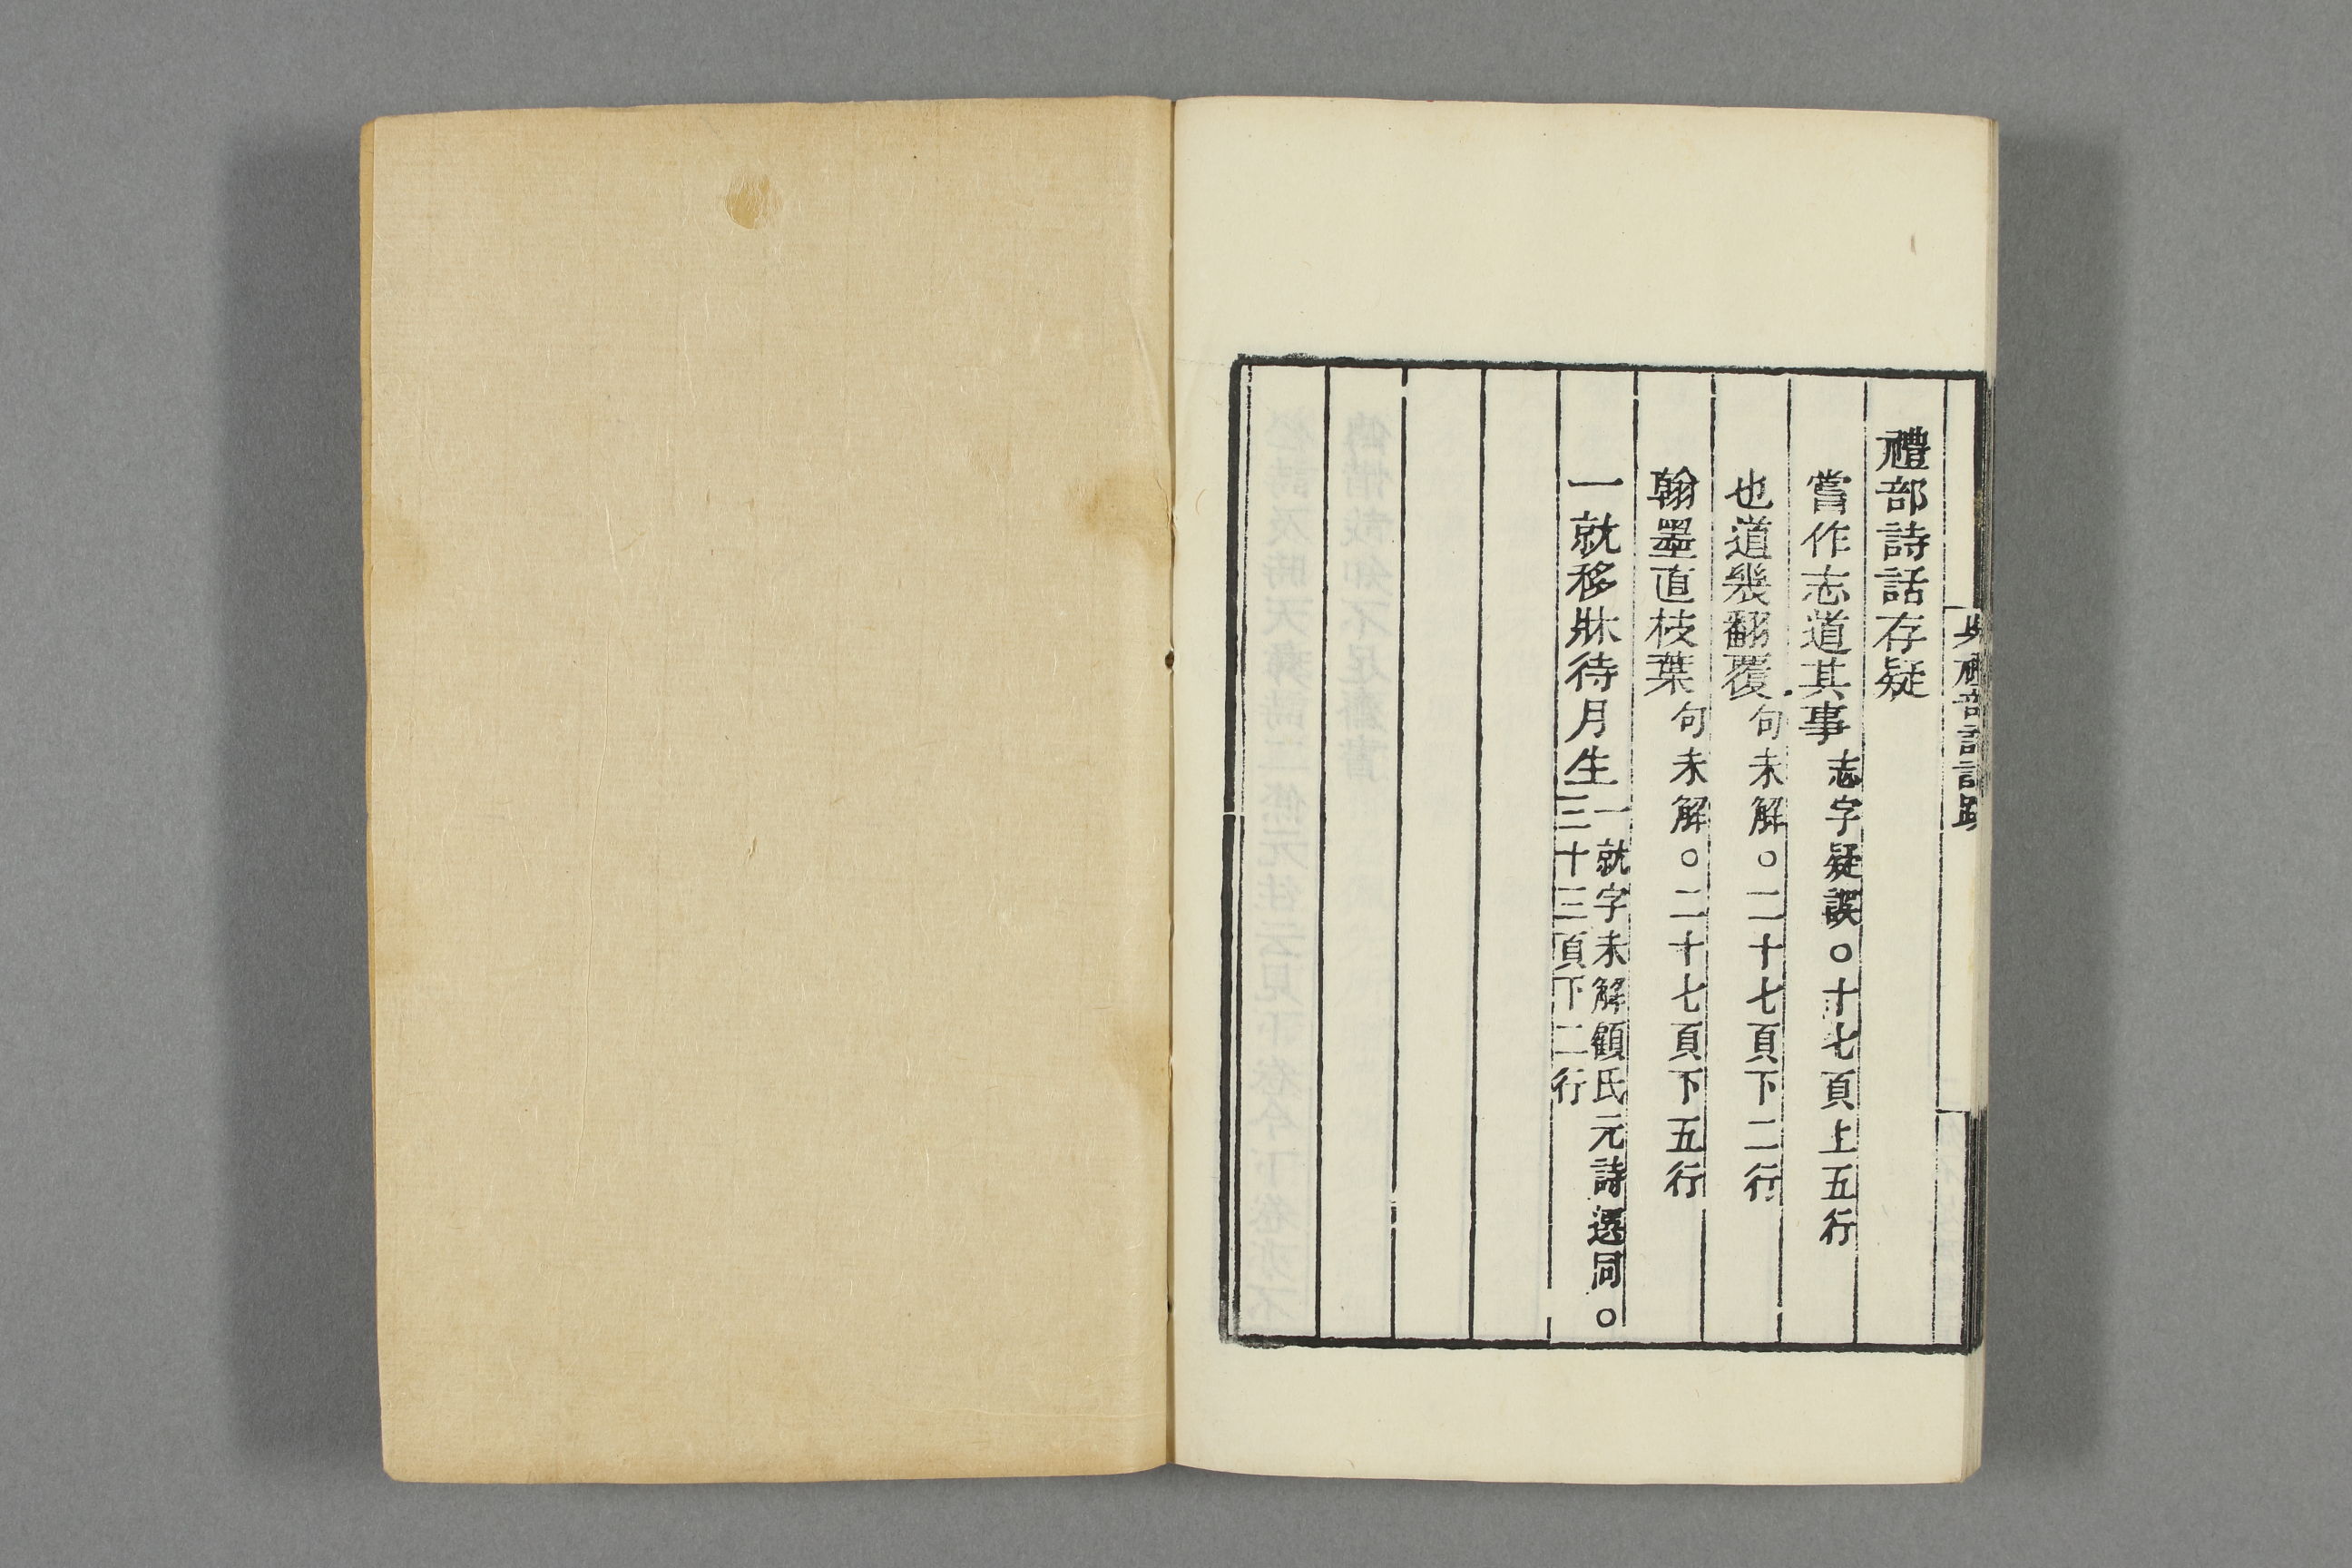 吳禮部詩話跋
禮部詩話存疑
嘗作志道其事志字疑誤○十七頁上五行
也道幾翻覆句未解○二十七頁下二行
翰墨直枝葉句未解○二十七頁下五行
一就移牀待月生一就字未解顧氏元詩選同○
三十三頁下二行